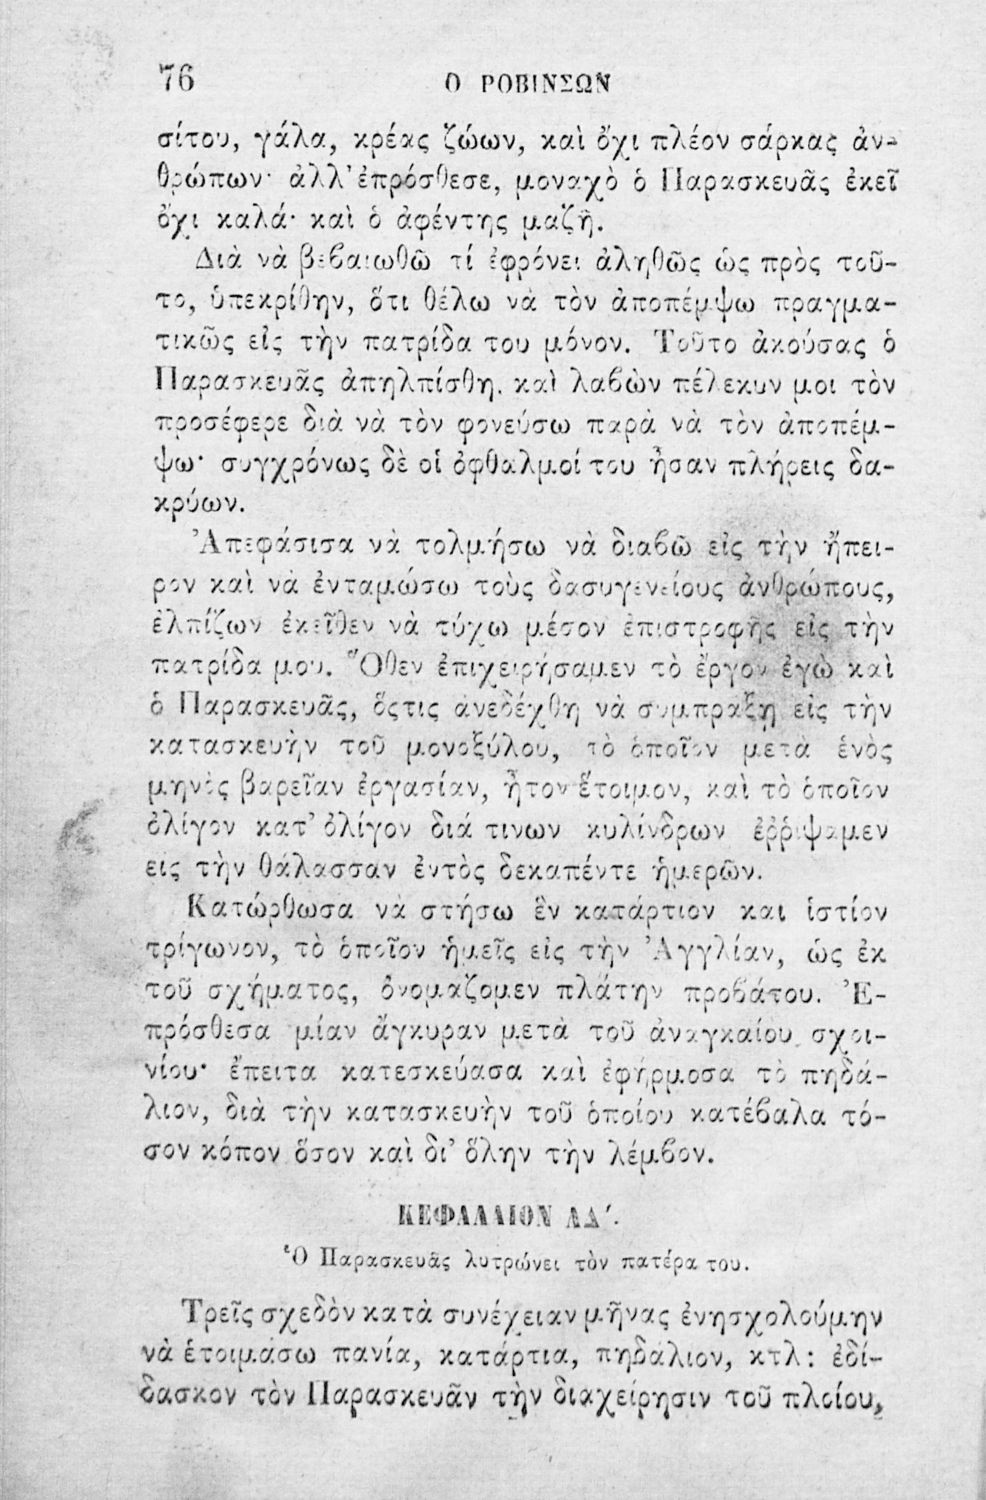 76 Ο ΡΟΒΙΝΣΩΝ
σίτου, γάλα, κρέας ζώων, καὶ ὄχι πλέον σάρκας ἀν-
θρώπων· ἀλλ' ἐπρόσθεσε, μοναχὸ ὁ Παρασκευᾶς ἐκεῖ
ὄχι καλά· καὶ ὁ ἀφέντης μαζῆ.
Διὰ νὰ βεβαιωθῶ τί ἐφρόνει ἀληθῶς ὡς πρὸς τοῦ-
το, ὑπεκρίθην, ὅτι θέλω νὰ τὸν ἀποπέμψω πραγμα-
τικῶς εἰς τὴν πατρίδα του μόνον. Τοῦτο ἀκούσας ὁ
Παρασκευᾶς ἀπηλπίσθη, καὶ λαβὼν πέλεκυν μοι τὸν
προσέφερε διὰ νὰ τὸν φονεύσω παρὰ νὰ τὸν ἀποπέμ-
ψω· συγχρόνως δὲ οἱ ὀφθαλμοί του ἦσαν πλήρεις δα-
κρύων.
Ἀπεφάσισα νὰ τολμήσω νὰ διαβῶ εἰς τὴν ἤπει-
ρον καὶ νὰ ἐνταμώσω τοὺς δασυγενείους ἀνθρώπους,
ἐλπίζων ἐκεῖθεν νὰ τύχω μέσον ἐπιστροφῆς εἰς τὴν
πατρίδα μου. Ὅθεν ἐπιχειρήσαμεν τὸ ἔργον ἐγὼ καὶ
ὁ Παρασκευᾶς, ὅςτις ἀνεδέχθη νὰ συμπράξῃ εἰς τὴν
κατασκευὴν τοῦ μονοξύλου, τὸ ὁποῖον μετὰ ἑνὸς
μηνὸς βαρεῖαν ἐργασίαν, ἦτον ἕτοιμον, καὶ τὸ ὁποῖον
ὀλίγον κατ' ὀλίγον διά τινων κυλίνδρων ἐῤῥίψαμεν
εις τὴν θάλασσαν ἐντὸς δεκαπέντε ἡμερῶν.
Κατώρθωσα νὰ στήσω ἓν κατάρτιον και ἱστίον
τρίγωνον, τὸ ὁποῖον ἡμεῖς εἰς τὴν Ἀγγλίαν, ὡς ἐκ
τοῦ σχήματος, ὀνομαζομεν πλάτην προβάτου. Ἐ-
πρόσθεσα μίαν ἄγκυραν μετὰ τοῦ ἀναγκαίου σχοι-
νίου· ἔπειτα κατεσκεύασα καὶ ἐφήρμοσα τὸ πηδά-
λιον, διὰ τὴν κατασκευὴν τοῦ ὁποίου κατέβαλα τό-
σον κόπον ὅσον καὶ δι' ὅλην τὴν λέμβον.
ΚΕΦΑΛΑΙΟΝ ΛΔ΄.
Ὁ Παρασκευᾶς λυτρώνει τὸν πατέρα του.
Τρεῖς σχεδὸν κατὰ συνέχειαν μῆνας ἐνησχολούμην
νὰ ἑτοιμάσω πανία, κατάρτια, πηδάλιον, κτλ: ἐδί-
δασκον τὸν Παρασκευᾶν τὴν διαχείρησιν τοῦ πλοίου,